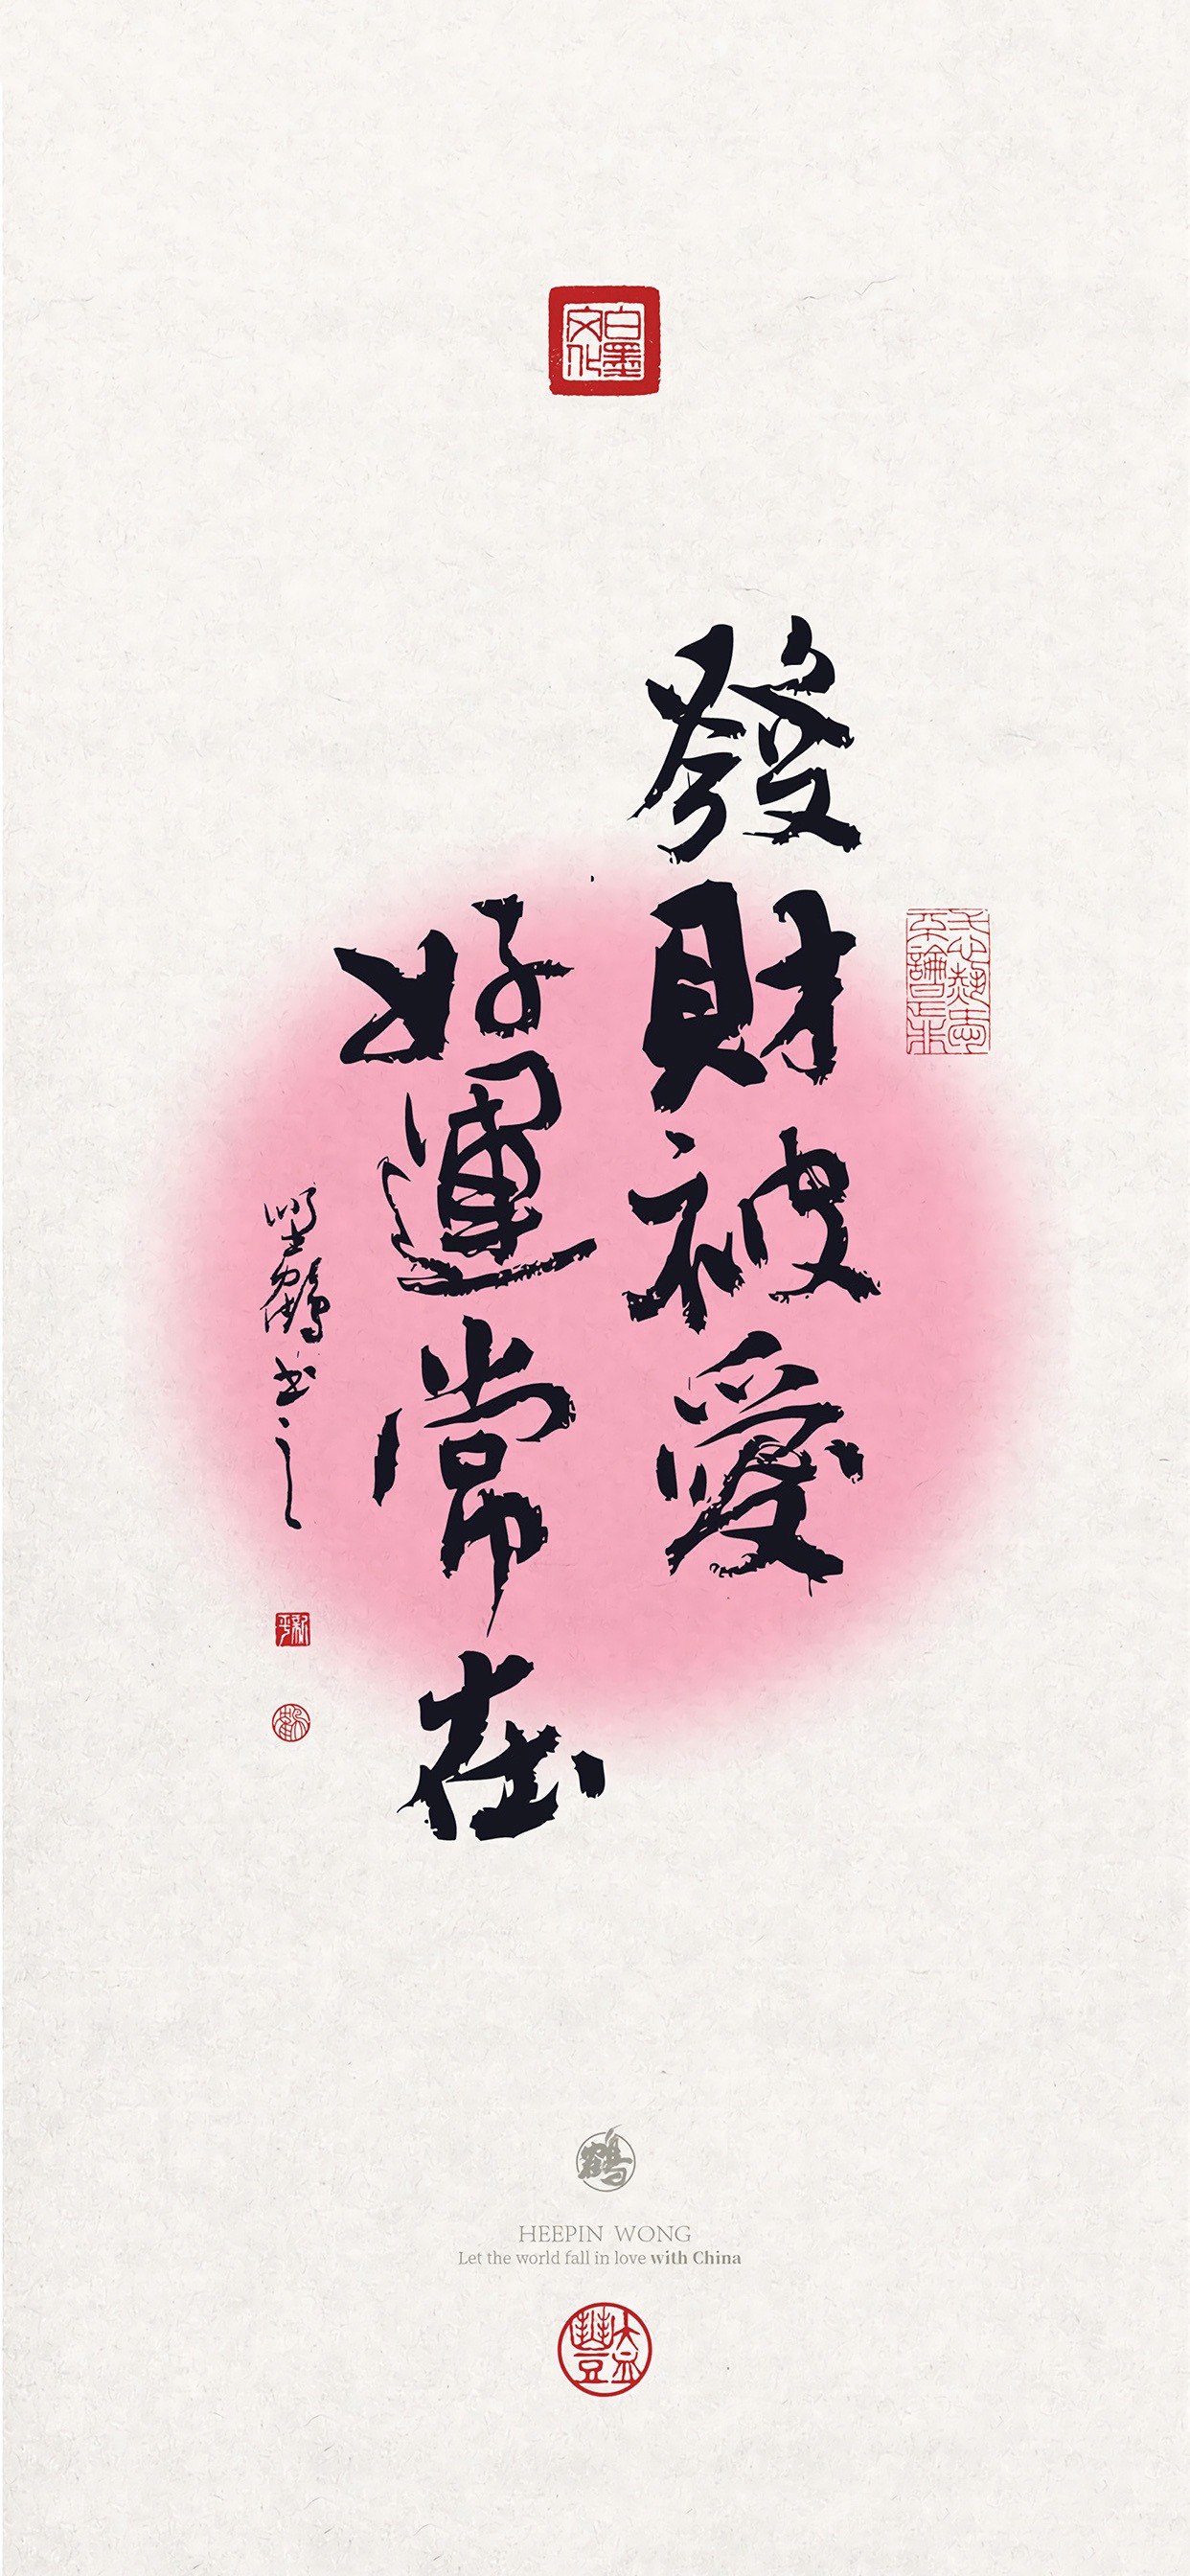 白墨文化
發財被愛
好運常在
鶴書之
新平
鶴
HEEPIN WONG
Let the world fall in love with China